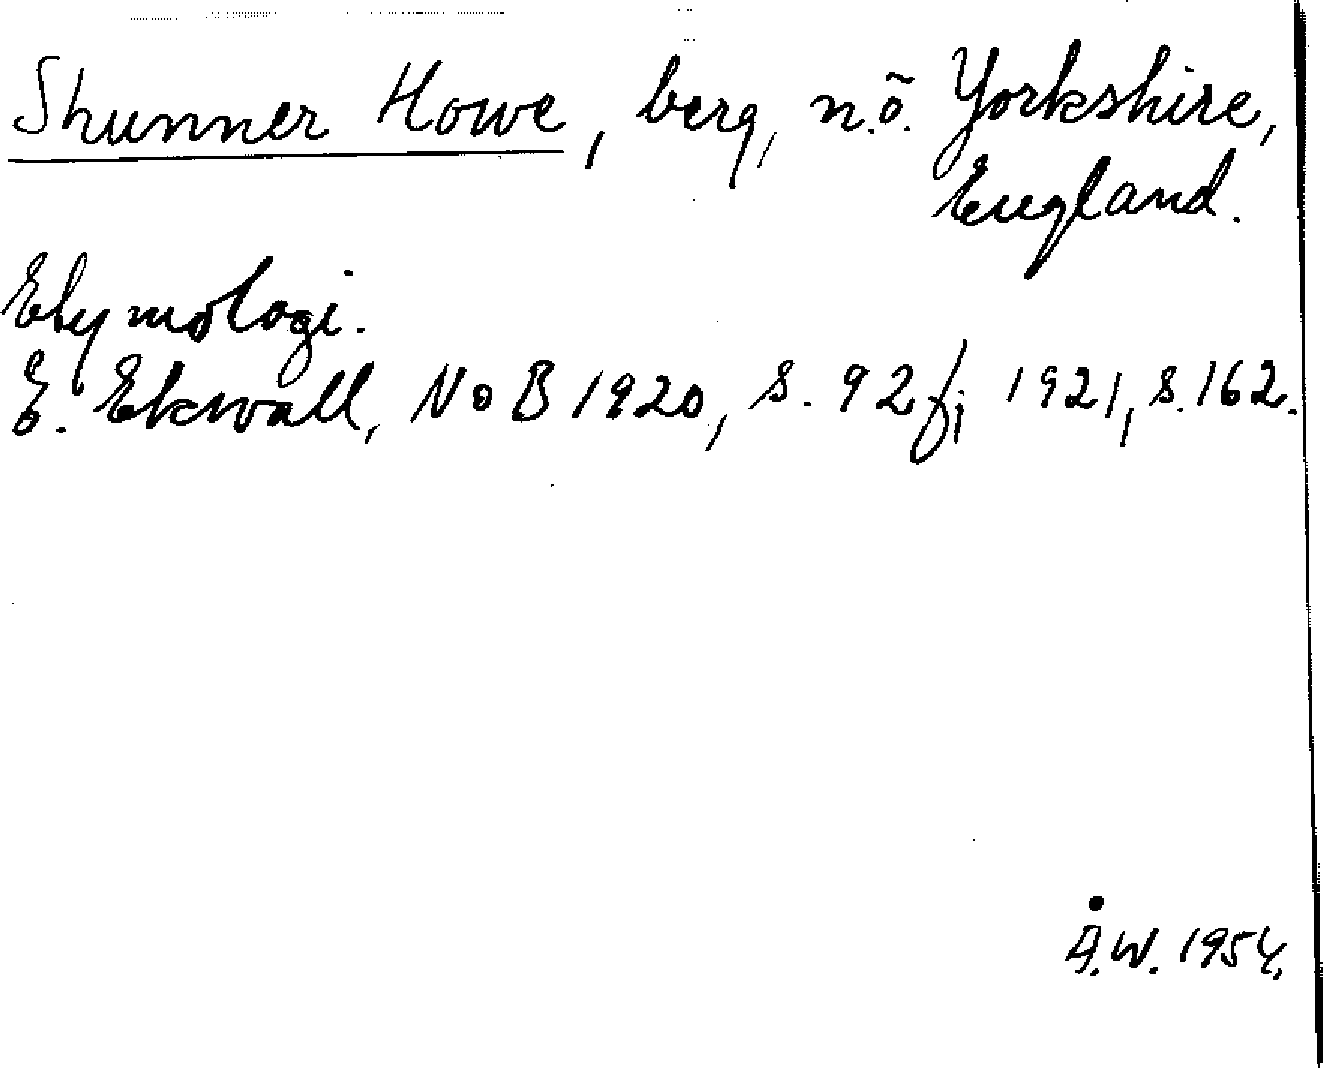 Shunner Howe, berg, n.ö. Yorkshire,
England.
Etymologi.
E. Ekwall, NoB 1920, s. 92 f; 1921, s. 162.
Å.W. 1954.